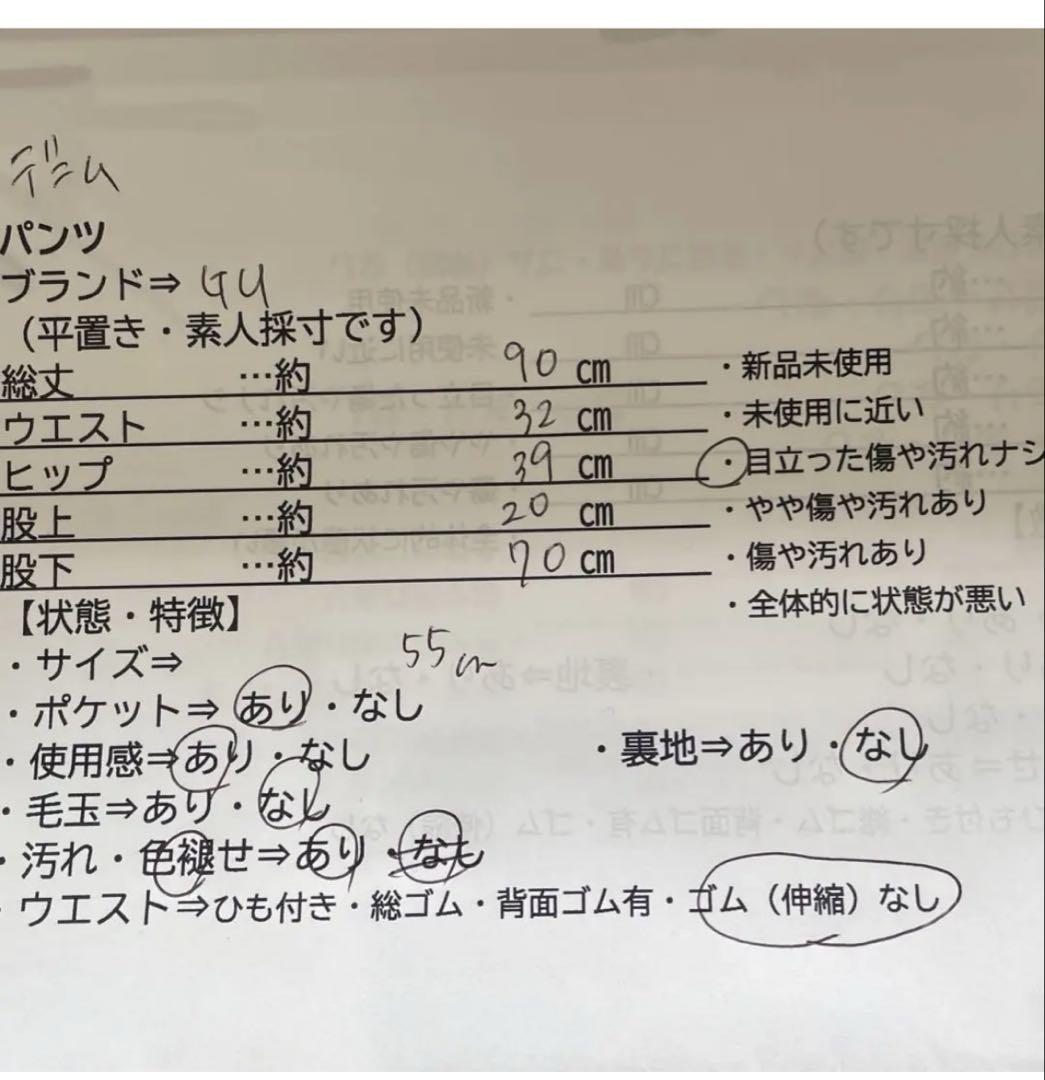 デニム
パンツ
ブランド⇒ GU
（平置き・素人採寸です）
総丈 …約 90 cm ・新品未使用
ウエスト …約 32 cm ・未使用に近い
ヒップ …約 39 cm ・目立った傷や汚れナシ
股上 …約 20 cm ・やや傷や汚れあり
股下 …約 70 cm ・傷や汚れあり
・全体的に状態が悪い
【状態・特徴】
・サイズ⇒ 55cm
・ポケット⇒ あり・なし
・使用感⇒あり・なし ・裏地⇒あり・なし
・毛玉⇒あり・なし
・汚れ・色褪せ⇒あり・なし
・ウエスト⇒ひも付き・総ゴム・背面ゴム有・ゴム（伸縮）なし